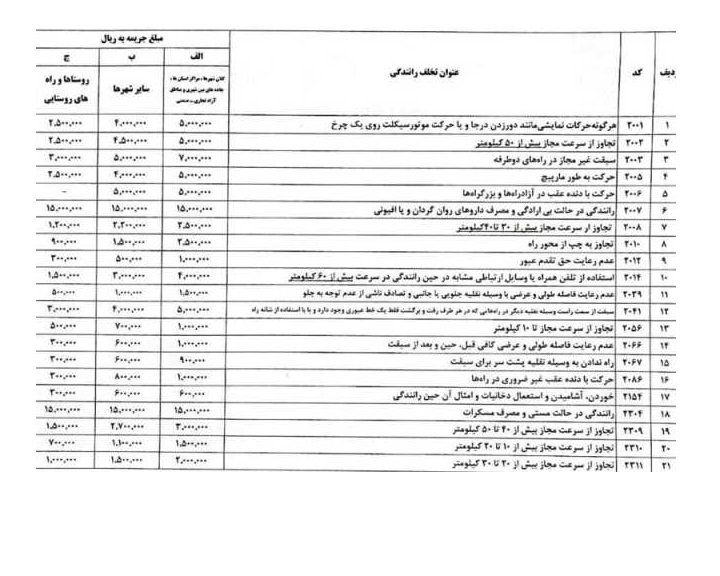 ردیف	کد	عنوان تخلف رانندگی	مبلغ جریمه به ریال
الف	ب	ج
کلان شهرها، مراکز استان ها، جاده های بین شهری و مناطق آزاد تجاری - صنعتی	سایر شهرها	روستاها و راه های روستایی
۱	۲۰۰۱	هرگونه حرکات نمایشی مانند دورزدن درجا و یا حرکت موتورسیکلت روی یک چرخ	۵,۰۰۰,۰۰۰	۴,۰۰۰,۰۰۰	۲,۵۰۰,۰۰۰
۲	۲۰۰۲	تجاوز از سرعت مجاز بیش از ۵۰ کیلومتر	۵,۰۰۰,۰۰۰	۴,۵۰۰,۰۰۰	۲,۵۰۰,۰۰۰
۳	۲۰۰۳	سبقت غیر مجاز در راه‌های دوطرفه	۷,۰۰۰,۰۰۰	۵,۰۰۰,۰۰۰	۳,۰۰۰,۰۰۰
۴	۲۰۰۵	حرکت به طور مارپیچ	۵,۰۰۰,۰۰۰	۴,۰۰۰,۰۰۰	۲,۵۰۰,۰۰۰
۵	۲۰۰۶	حرکت با دنده عقب در آزادراه‌ها و بزرگراه‌ها	۵,۰۰۰,۰۰۰	۵,۰۰۰,۰۰۰	-
۶	۲۰۰۷	رانندگی در حالت بی ارادگی و مصرف داروهای روان گردان و یا افیونی	۱۵,۰۰۰,۰۰۰	۱۵,۰۰۰,۰۰۰	۱۵,۰۰۰,۰۰۰
۷	۲۰۰۸	تجاوز از سرعت مجاز بیش از ۳۰ تا ۴۰ کیلومتر	۲,۵۰۰,۰۰۰	۲,۲۰۰,۰۰۰	۱,۲۰۰,۰۰۰
۸	۲۰۱۰	تجاوز به چپ از محور راه	۲,۵۰۰,۰۰۰	۱,۵۰۰,۰۰۰	۹۰۰,۰۰۰
۹	۲۰۱۲	عدم رعایت حق تقدم عبور	۱,۰۰۰,۰۰۰	۵۰۰,۰۰۰	۳۰۰,۰۰۰
۱۰	۲۰۱۴	استفاده از تلفن همراه یا وسایل ارتباطی مشابه در حین رانندگی در سرعت بیش از ۶۰ کیلومتر	۴,۰۰۰,۰۰۰	۳,۰۰۰,۰۰۰	۱,۵۰۰,۰۰۰
۱۱	۲۰۳۹	عدم رعایت فاصله طولی و عرضی با وسیله نقلیه جلویی یا جانبی و تصادف ناشی از عدم توجه به جلو	۱,۵۰۰,۰۰۰	۱,۰۰۰,۰۰۰	۵۰۰,۰۰۰
۱۲	۲۰۴۱	سبقت از سمت راست وسیله نقلیه دیگر در راه‌هایی که در هر طرف رفت و برگشت فقط یک خط عبوری وجود دارد و یا با استفاده از شانه راه	۵,۰۰۰,۰۰۰	۴,۰۰۰,۰۰۰	۳,۰۰۰,۰۰۰
۱۳	۲۰۵۶	تجاوز از سرعت مجاز تا ۱۰ کیلومتر	۱,۰۰۰,۰۰۰	۷۰۰,۰۰۰	۵۰۰,۰۰۰
۱۴	۲۰۶۶	عدم رعایت فاصله طولی و عرضی کافی قبل، حین و بعد از سبقت	۱,۰۰۰,۰۰۰	۶۰۰,۰۰۰	۳۰۰,۰۰۰
۱۵	۲۰۶۷	راه ندادن به وسیله نقلیه پشت سر برای سبقت	۹۰۰,۰۰۰	۶۰۰,۰۰۰	۳۰۰,۰۰۰
۱۶	۲۰۸۶	حرکت با دنده عقب غیر ضروری در راه‌ها	۱,۰۰۰,۰۰۰	۸۰۰,۰۰۰	۳۰۰,۰۰۰
۱۷	۲۱۵۴	خوردن، آشامیدن و استعمال دخانیات و امثال آن حین رانندگی	۶۰۰,۰۰۰	۶۰۰,۰۰۰	۳۰۰,۰۰۰
۱۸	۲۳۰۴	رانندگی در حالت مستی و مصرف مسکرات	۱۵,۰۰۰,۰۰۰	۱۵,۰۰۰,۰۰۰	۱۵,۰۰۰,۰۰۰
۱۹	۲۳۰۹	تجاوز از سرعت مجاز بیش از ۴۰ تا ۵۰ کیلومتر	۳,۰۰۰,۰۰۰	۲,۷۰۰,۰۰۰	۱,۵۰۰,۰۰۰
۲۰	۲۳۱۰	تجاوز از سرعت مجاز بیش از ۱۰ تا ۲۰ کیلومتر	۱,۵۰۰,۰۰۰	۱,۱۰۰,۰۰۰	۷۰۰,۰۰۰
۲۱	۲۳۱۱	تجاوز از سرعت مجاز بیش از ۲۰ تا ۳۰ کیلومتر	۲,۰۰۰,۰۰۰	۱,۵۰۰,۰۰۰	۱,۰۰۰,۰۰۰